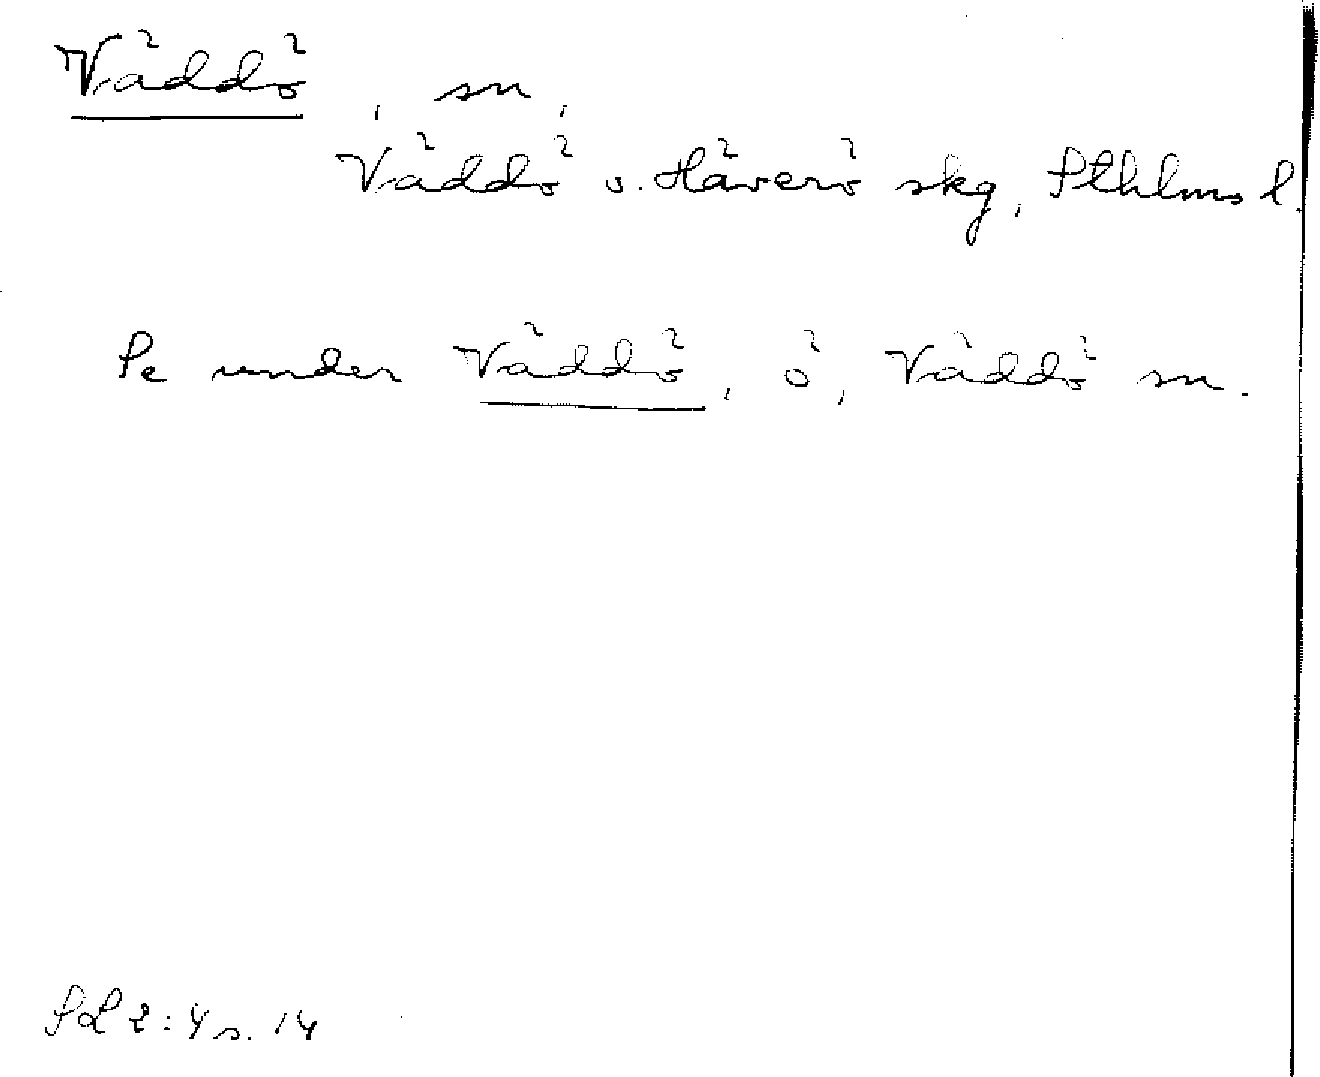 Väddö, sn,
Väddö o. Häverö skg, Sthlms l.
Se under Väddö, ö, Väddö sn.
SL 2:4 s. 14